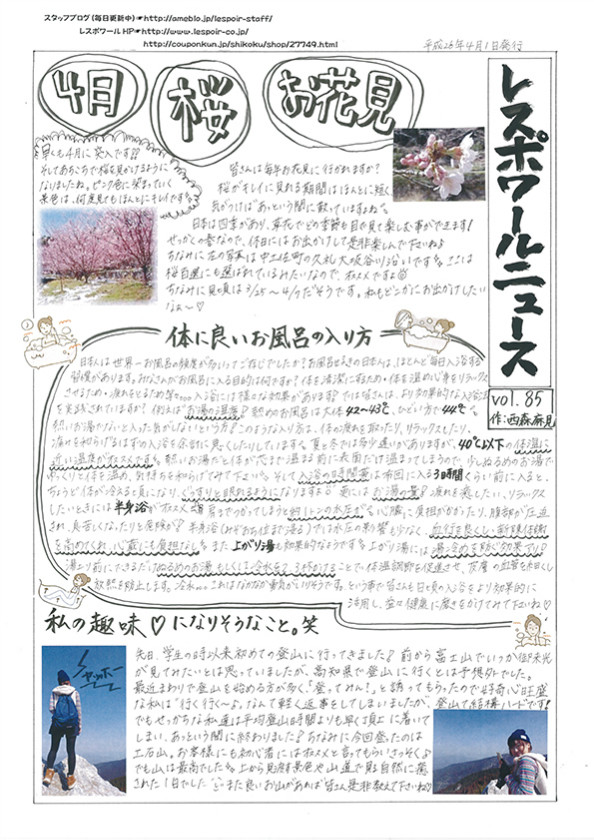 スタッフブログ(毎日更新中)☞http://ameblo.jp/lespoir-staff/
レスポワールHP☞http://www.lespoir-co.jp/
http://couponkun.jp/shikoku/shop/27749.html
平成26年4月1日発行
レスポワールニュース
vol. 85
作:西森麻見
4月 桜 お花見
早くも4月に突入です
そしてあちこちで桜を見かけるように
なりましたね。ピンク色に染まっていく
景色は、何度見てもほんとにキレイです
皆さんは毎年お花見に行かれますか?
桜がキレイに見れる期間はほんとに短く
気がつけば"あっ"という間に散っていますよね
日本は四季があり、草花でどの季節も目で見て楽しむ事ができます!
せっかくの春なので、休日にはお出かけして是非楽しんで下さいね
ちなみに左の写真は中土佐町の久礼大坂谷川沿いです ここは
桜百選にも選ばれているみたいなので、オススメです
ちなみに見頃は3/25〜4/7だそうです。私もどこかにお出かけしたい
なぁ〜♡
体に良いお風呂の入り方
日本人は世界一お風呂の頻度が高いってご存じでしたか?お風呂好きの日本人は、ほとんど毎日入浴する
習慣があります。みなさんがお風呂に入る目的は何ですか?体を清潔にするため・体を温めて心身をリラックス
させるため・疲れをとるため等。入浴には様々な効果があります では皆さんは、より効果的な入浴法
を実践されていますか? 例えばお湯の温度 熱めのお風呂は大体42〜43℃、ひどい方で44℃
熱いお湯でないと入った気がしないという方!このような入り方は、体の疲れを取ったり、リラックスしたり、
疲れを和らげるはずの入浴を余計に悪くしたりしています 夏と冬では多少違いがありますが、40℃以下の体温に
近い温度がオススメです 熱いお湯だと体が芯まで温まる前に表面だけ温まってしまうので、少しぬるめのお湯で
ゆっくりと体を温め、気持ちを和らげてみて下さい そして入浴の時間帯は布団に入る3時間くらい前に入ると、
ちょうど体が冷える頃になり、ぐっすりと眠れるようになりますよ 更にはお湯の量 疲れを癒したい、リラックス
したいときには半身浴がオススメ 肩までつかってしまうと約1トンの水圧が 心臓に負担がかかったり、腹部が圧迫
され、息苦しくなったりと危険が 半身浴(みぞおち位まで浸る)では水圧の影響も少なく、血行を良くし、新陳代謝
を高めてくれ、心臓にも負担なし また上がり湯も効果的なようです 上がり湯には湯冷めを防ぐ効果アリ
湯上り前にできるだけぬるめのお湯もしくは冷水を2、3杯かけることで、体温調節を促進させ、皮膚の血管を収縮し
放熱を防止します。冷水… これはなかなか勇気がいりそうです という事で皆さんも日々の入浴をより効果的に
活用し、益々健康に磨きをかけてみて下さいね♡
私の趣味♡になりそうなこと。笑
ヤッホー
先日、学生の時以来初めての登山に行ってきました 前から富士山でいつか御来光
が見てみたいとは思っていましたが、高知県で登山に行くとは予想外でした。
最近まわりで登山を始める方が多く、"登ってみん!"と誘ってもらったので好奇心旺盛
な私は"行く行く〜"なんて軽く返事をしてしまいましたが、登山て結構ハードです!
でもせっかちな私達は平均登山時間よりも早く頂上に着いて
しまい、あっという間に終わりました ちなみに今回登ったのは
工石山。お客様にも初心者にはオススメと言ってもらいさっそく
でも山は最高でした 上から見渡す景色や山道で見る自然に癒
された1日でした また良いお山があれば皆さん是非教えて下さいね